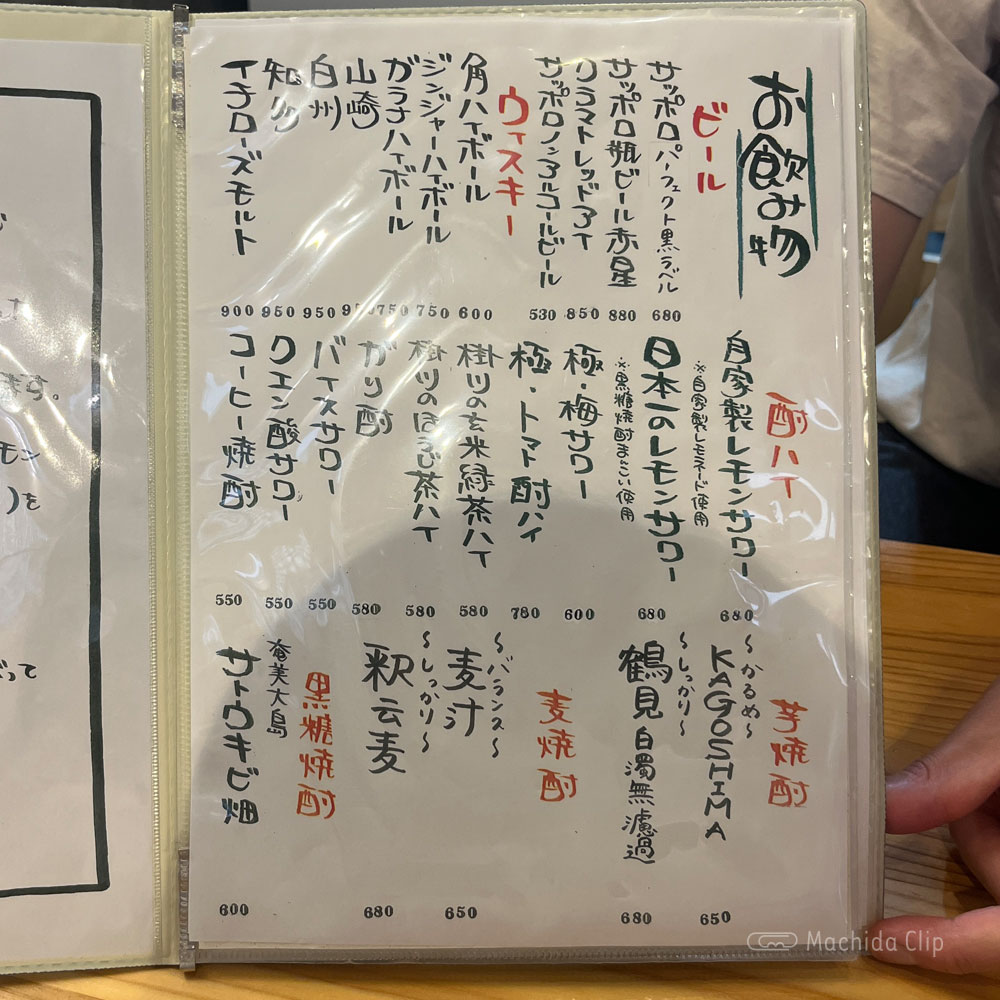 お飲み物
ビール
サッポロパーフェクト黒ラベル 680
サッポロ瓶ビール赤星 880
クラマトレッドアイ 850
サッポロノンアルコールビール 530
ウィスキー
角ハイボール 600
ジンジャーハイボール 750
ガラナハイボール 750
山崎 950
白州 950
知多 950
イチローズモルト 900
酎ハイ
自家製レモンサワー 680
※自家製レモネード使用
日本一のレモンサワー 680
※黒糖焼酎まーさん使用
極・梅サワー 600
極・トマト酎ハイ 780
掛ツの玄米緑茶ハイ 580
掛ツのほうじ茶ハイ 580
がり酎 580
バイスサワー 550
クエン酸サワー 550
コーヒー焼酎 550
芋焼酎
〜かるめ〜
KAGOSHIMA 650
〜しっかり〜
鶴見 白濁無濾過 680
麦焼酎
〜バランス〜
麦汁 650
〜しっかり〜
釈云麦 680
黒糖焼酎
奄美大島
サトウキビ畑 600
ます。
モン
)を
って
Machida Clip